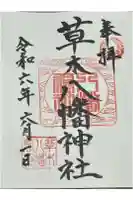 奉拝
草木八幡神社
令和六年六月一日